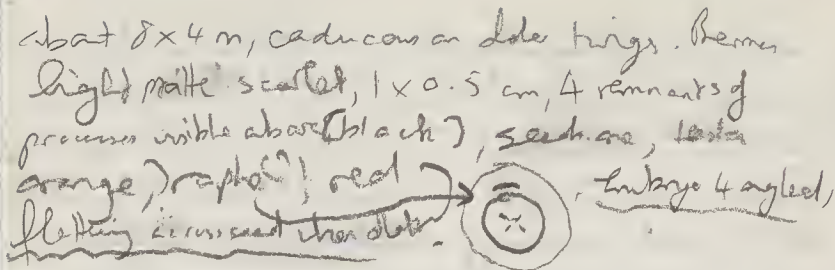 about 8 x 4 m, caducous on older twigs. Berries
bright matte scarlet, 1 x 0.5 cm, 4 remnants of
processes visible above (black), seed one, testa
orange, raphe(?) red
. Embryo 4 angled,
flattening across seed when older.